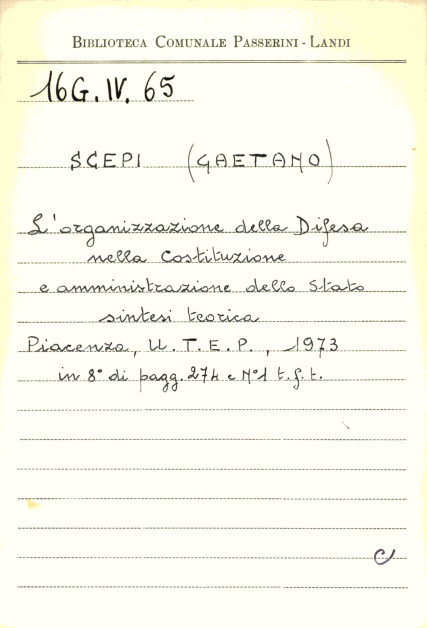 BIBLIOTECA COMUNALE PASSERINI - LANDI
16G. IV. 65
SCEPI (GAETANO)
L'organizzazione della Difesa
nella Costituzione
e amministrazione dello Stato
sintesi teorica
Piacenza, U. T. E. P., 1973
in 8° di pagg. 274 e N°1 t.f.t.
C